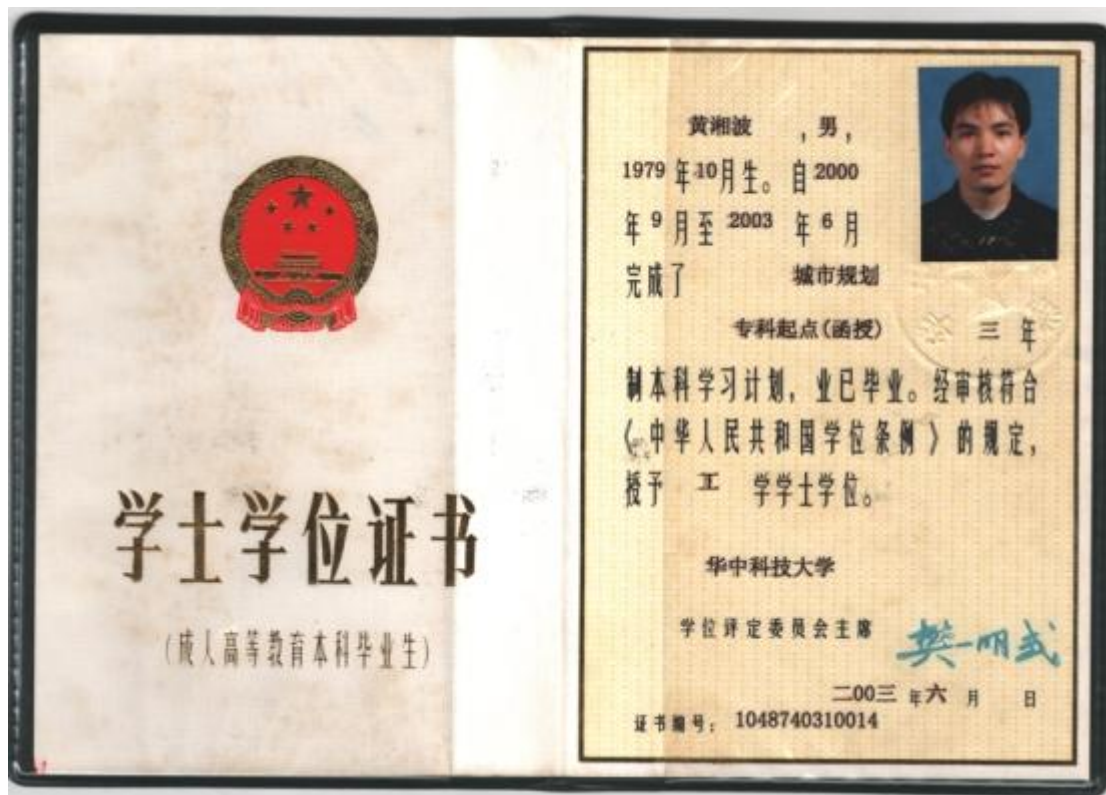 学士学位证书
(成人高等教育本科毕业生)
黄湘波 ,男,
1979 年 10 月生。自 2000
年 9 月至 2003 年 6 月
完成了 城市规划
专科起点(函授) 三 年
制本科学习计划,业已毕业。经审核符合
《中华人民共和国学位条例》的规定,
授予 工 学学士学位。
华中科技大学
学位评定委员会主席 樊明武
二00三 年 六 月 日
证书编号: 1048740310014